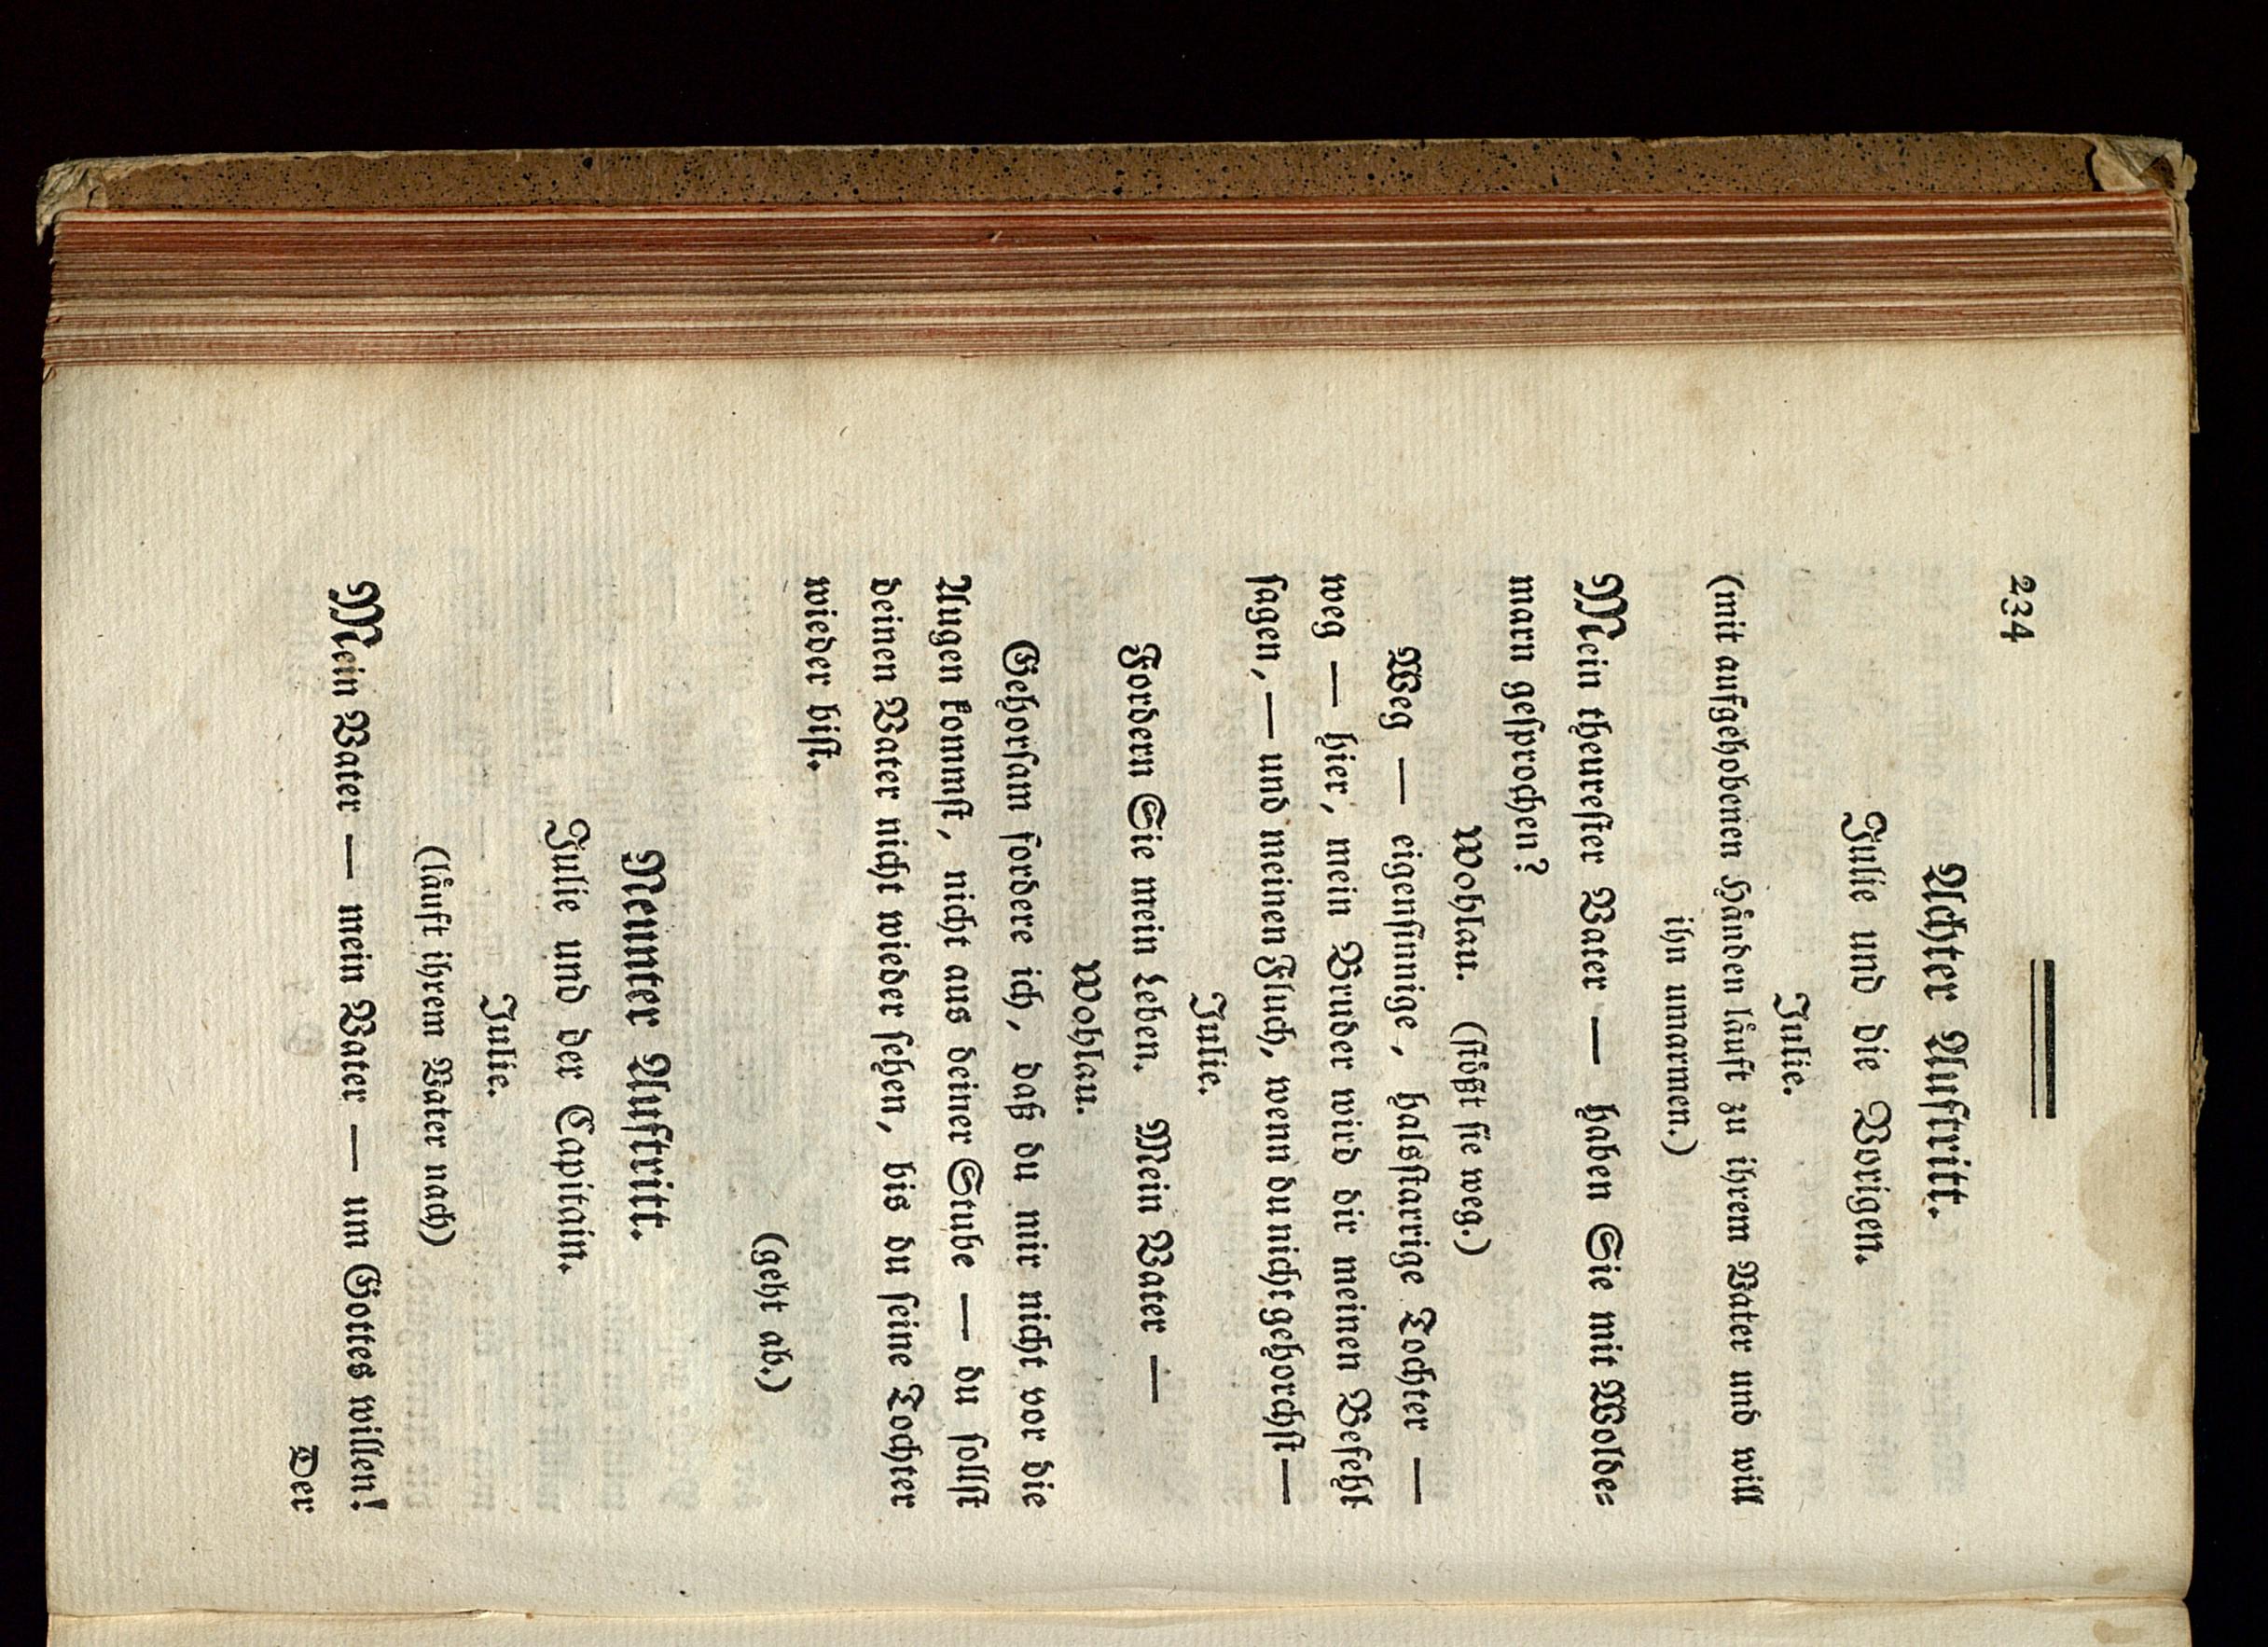 234
Achter Auftritt.
Julie und die Vorigen.
Julie.
(mit aufgehobenen Händen läuft zu ihrem Vater und will
ihn umarmen.)
Mein theurester Vater — haben Sie mit Wolde-
marn gesprochen?
Wohlau. (stößt sie weg.)
Weg — eigensinnige, halsstarrige Tochter —
weg — hier, mein Bruder wird dir meinen Befehl
sagen, — und meinen Fluch, wenn du nicht gehorchst —
Julie.
Fordern Sie mein Leben. Mein Vater —
Wohlau.
Gehorsam fordere ich, daß du mir nicht vor die
Augen kommst, nicht aus deiner Stube — du sollst
deinen Vater nicht wieder sehen, bis du seine Tochter
wieder bist.
(geht ab.)
Neunter Auftritt.
Julie und der Capitain.
Julie.
(läuft ihrem Vater nach)
Mein Vater — mein Vater — um Gottes willen!
Der